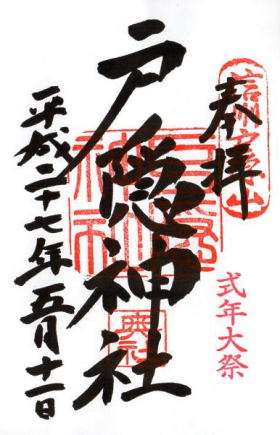 奉拝
信州戸隠山
式年大祭
戸隠神社
奥社
平成二十七年五月十一日